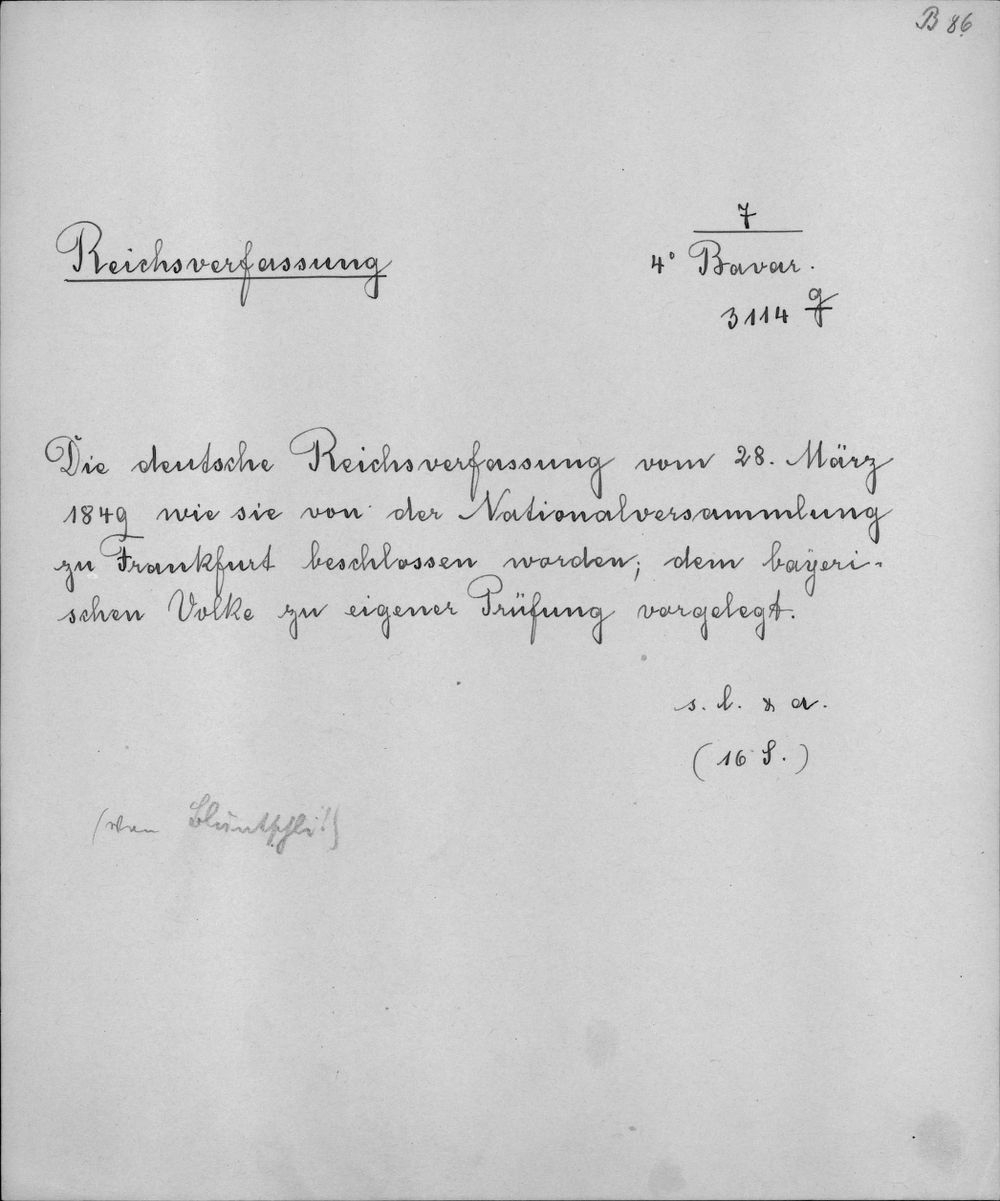 B 86
Reichsverfassung
7
4° Bavar.
3114 g
Die deutsche Reichsverfassung vom 28. März
1849 wie sie von der Nationalversammlung
zu Frankfurt beschlossen worden; dem bayeri-
schen Volke zu eigener Prüfung vorgelegt.
s. l. & a.
(16 S.)
(von Bluntschli!)